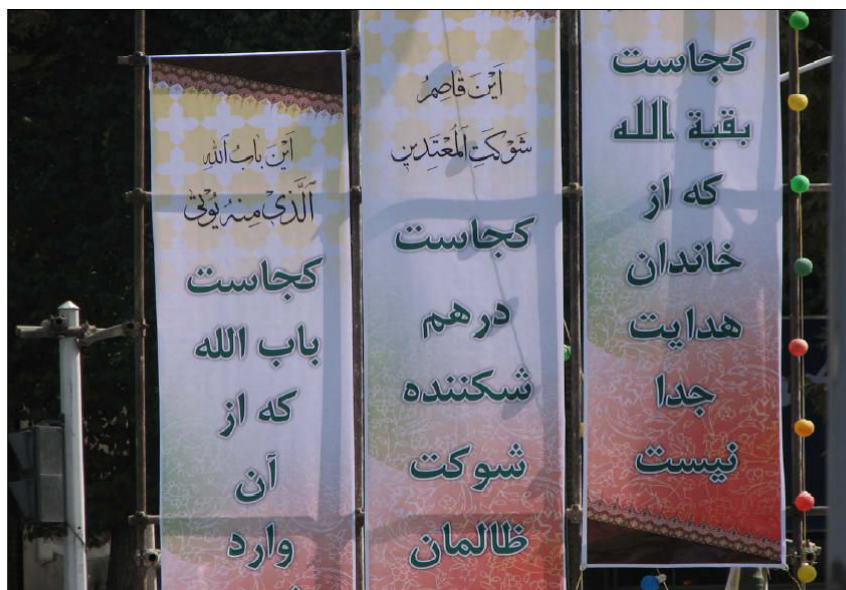 کجاست
بقیة الله
که از
خاندان
هدایت
جدا
نیست
اَینَ قاصِمُ
شَوْکَتِ اَلْمُعْتَدینَ
کجاست
درهم
شکننده
شوکت
ظالمان
اَینَ بابُ اللهِ
اَلَّذی مِنهُ یُوْتی
کجاست
باب الله
که از
آن
وارد